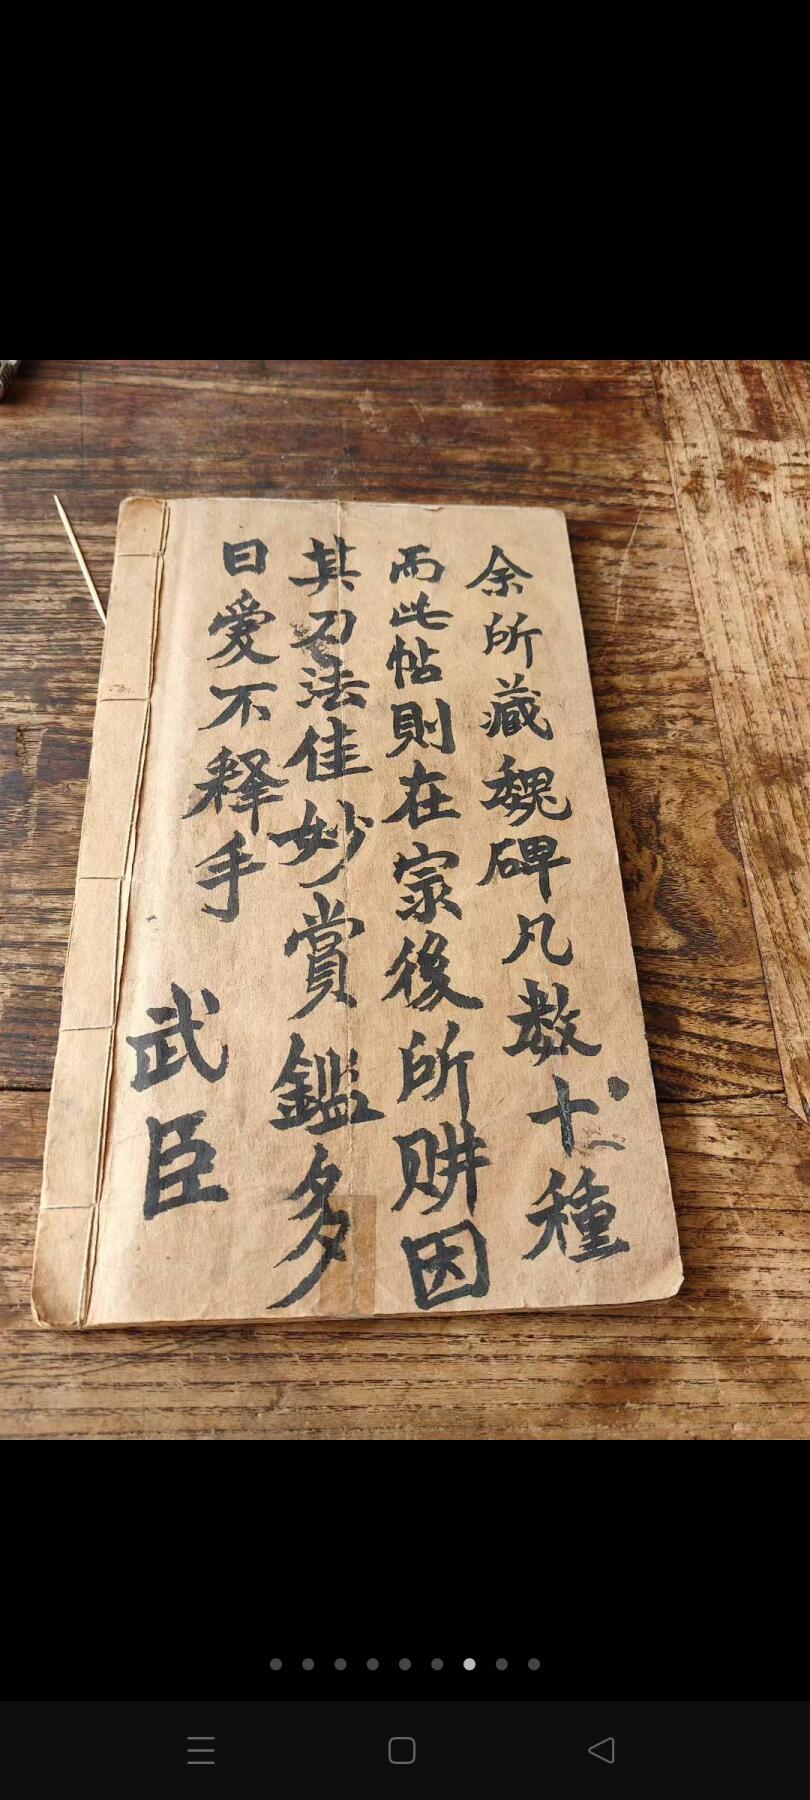 余所藏魏碑凡数十種
而此帖則在最後所購因
其刀法佳妙賞鑑多
日愛不释手
武臣